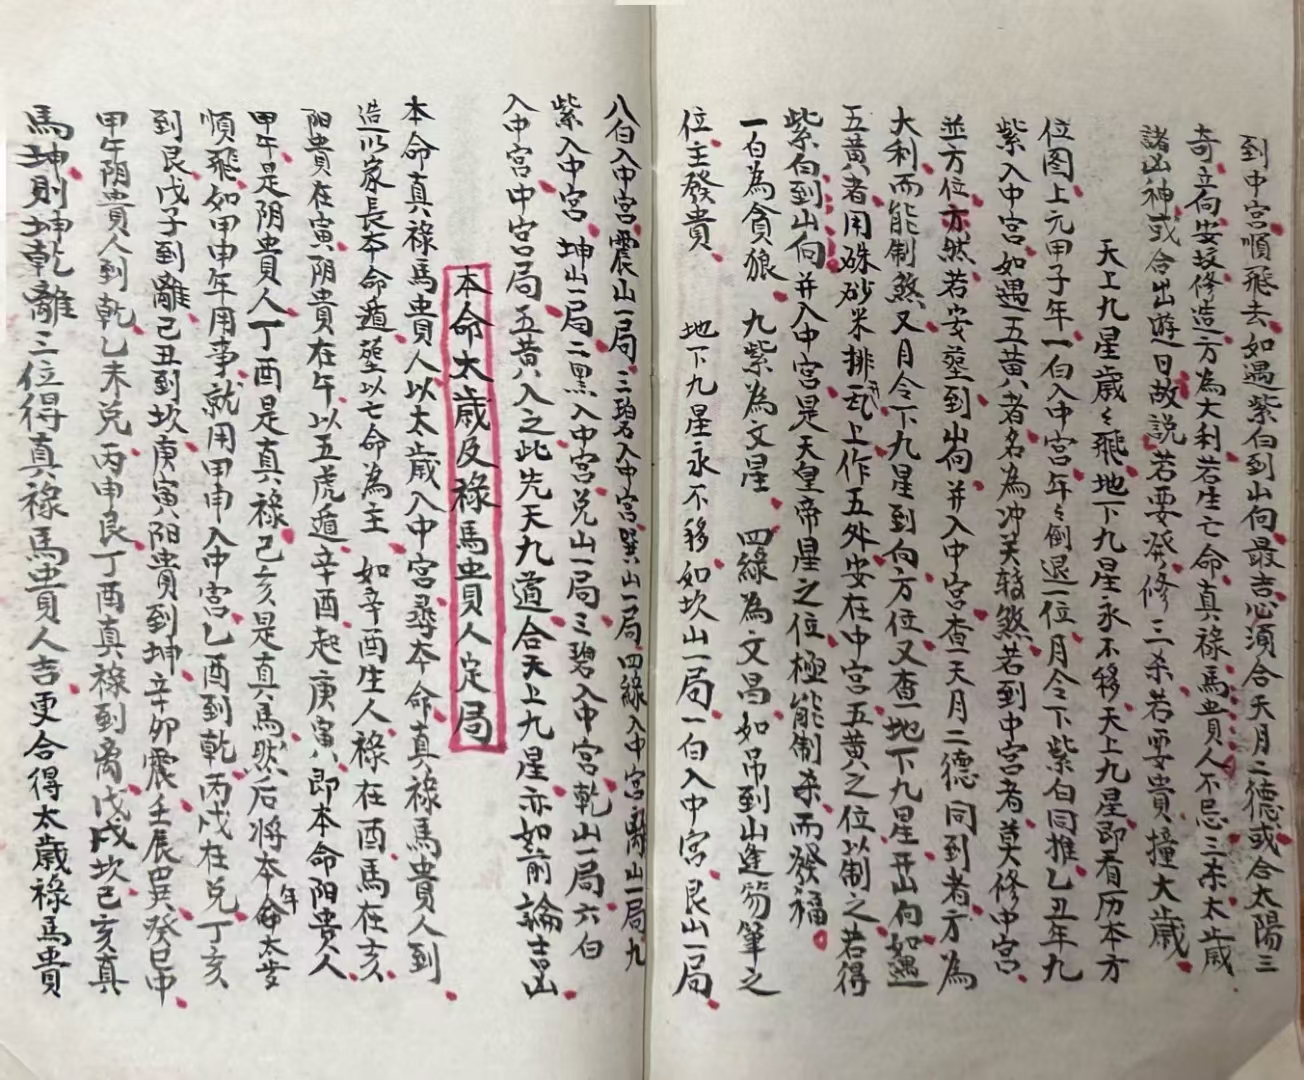 到中宮順飛去如遇紫白到山向最吉必須合天月二德或合太陽三
奇立向安坟修造方為大利若生亡命真祿馬貴人不忌三杀太歲
諸凶神或合出遊日故説若要發修三杀若要貴撞大歲
天上九星歲々飛地下九星永不移天上九星即看历本方
位图上元甲子年一白入中宮年々倒退一位月令下紫白同推乙丑年九
紫入中宮如遇五黄者名為冲关煞若到中宮者莫修中宮
並方位亦然若安塟到山向并入中宮查天月二德同到者方為
大利而能制煞又月令下九星到向方位又查地下九星开山向如遇
五黄者用硃砂米排瓦上作五外安在中宮五黄之位以制之若得
紫白到山向并入中宮是天皇帝星之位極能制杀而發福
一白為貪狼 九紫為文星 四綠為文昌如吊到山逢笏筆之
位主發貴 地下九星永不移如坎山一局一白入中宮艮山一局
八白入中宮震山一局三碧入中宮巽山一局四綠入中宮離山一局九
紫入中宮坤山一局二黑入中宮兑山一局三碧入中宮乾山一局六白
入中宮中宮局五黄入之此先天九道合天上九星亦如前論吉凶
本命太歲及祿馬貴人定局
本命真祿馬贵人以太歲入中宮尋本命真祿馬貴人到
造以家長本命遁塟以亡命為主如辛酉生人祿在酉馬在亥
阳貴在寅阴貴在午以五虎遁辛酉起庚寅即本命阳贵人
甲午是阴贵人丁酉是真祿己亥是真馬然后将本年命太歲
順飛如甲申年用事就用甲申入中宮乙酉到乾丙戌在兑丁亥
到艮戊子到離己丑到坎庚寅阳贵到坤辛卯震壬辰巽癸巳中
甲午阴貴人到乾乙未兑丙申艮丁酉真祿到离戊戌坎己亥真
馬坤則坤乾離三位得真祿馬貴人吉更合得太歲祿馬貴